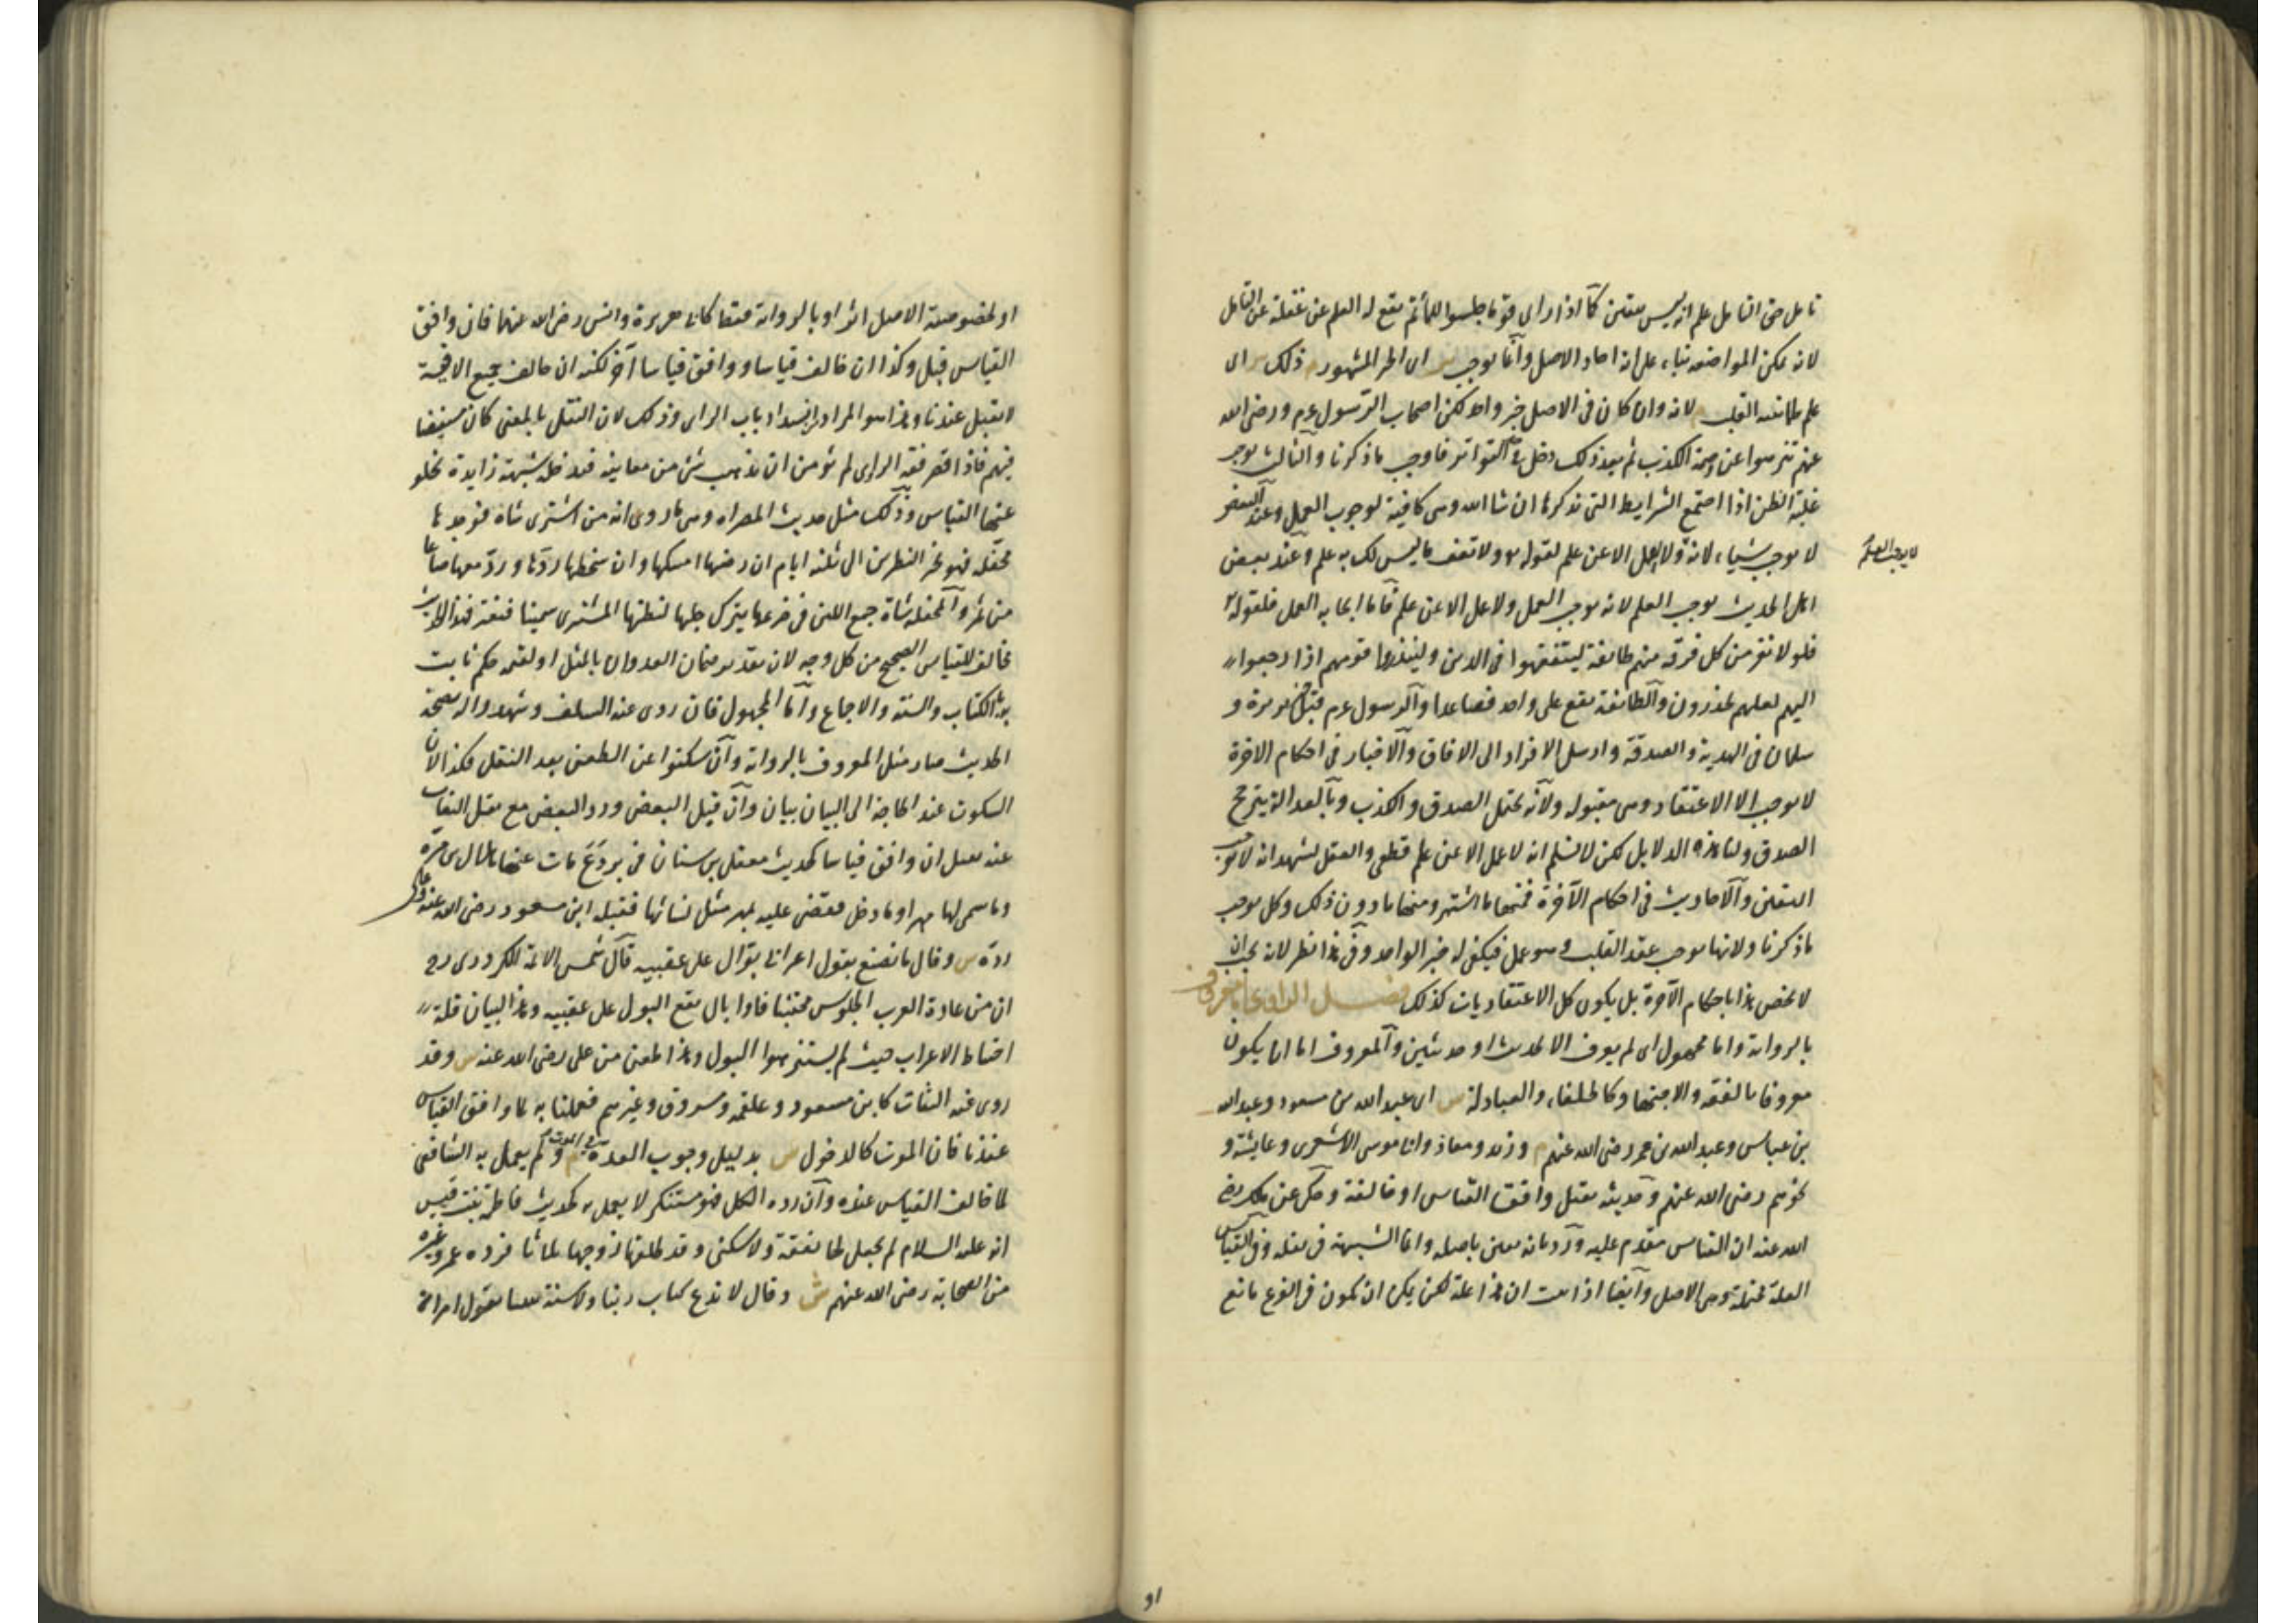 تامل حق التامل علم انه ليس بيقين كما اذا راى قوما جلسوا للمأتم يقع له العلم عن غفلة عن التامل
لانه يمكن المواضعة بناء على انه احاد الاصل وانما يوجب س اى الخبر المشهور م ذلك س اى
علم طمانينة القلب لانه وان كان فى الاصل خبر واحد لكن اصحاب الرسول عم ورضى الله
عنهم تنزهوا عن وصمة الكذب ثم بعد ذلك دخل فى حد التواتر فاوجب ما ذكرنا والثالث يوجب
غلبة الظن اذا اجتمع الشرايط التى نذكرها ان شا الله وهى كافية لوجوب العمل وعند البعض
لا يوجب شيا، لانه ولا عمل الا عن علم لقوله ولا تقف ما ليس لك به علم وعند بعض
لا يوجب العلم
اهل الحديث يوجب العلم لانه يوجب العمل ولا عمل الا عن علم فاما ايجابه العمل فلقوله
فلولا نفر من كل فرقة منهم طائفة ليتفقهوا فى الدين ولينذروا قومهم اذا رجعوا
اليهم لعلهم يحذرون والطائفة تقع على واحد فصاعدا والرسول عم قبل خبر بريرة و
سلمان فى الهدية والصدقة وارسل الافراد الى الافاق والاخبار فى احكام الاخرة
لا يوجب الا الاعتقاد وهى مقبولة ولانه يحتمل الصدق والكذب وبالعدالة يترجح
الصدق ولنا هذه الدلايل لكن لا نسلم انه لا عمل الا عن علم قطعى والعقل يشهد انه لا يوجب
اليقين والاحاديث فى احكام الآخرة فمنها ما اشتهر ومنها ما دون ذلك وكل يوجب
ما ذكرنا ولانها يوجب عقد القلب وهو عمل فيكفى له خبر الواحد وفى هذا نظر لانه يجب ان
لا يختص هذا باحكام الآخرة بل يكون كل الاعتقاديات كذلك فصل الراوى اما معروف
بالرواية واما مجهول اى لم يعرف الا بحديث او حديثين والمعروف اما ان يكون
معروفا بالفقه والاجتهاد كالخلفاء والعبادلة س اى عبد الله بن مسعود وعبد الله
بن عباس وعبد الله بن عمر رضى الله عنهم م وزيد ومعاذ وابا موسى الاشعرى وعايشة و
نحوهم رضى الله عنهم وحديثه يقبل وافق القياس او خالفه وحكى عن مالك رضى
الله عنه ان القياس مقدم عليه ورد بانه يقين باصله وانما الشبهة فى نقله وفى القياس
العلة محتملة وهى الاصل وايضا اذا ثبت ان هذا علة لكن يمكن ان يكون فى الفرع مانع
31
او لخصوصية الاصل اثر او بالرواية فقط كابى هريرة وانس رضى الله عنهما فان وافق
القياس قبل وكذا ان خالف قياسا ووافق قياسا آخر لكنه ان خالف جميع الاقيسة
لا يقبل عندنا وهذا هو المراد بانسداد باب الراى وذلك لان النقل بالمعنى كان مستفيضا
فيهم فاذا قصر فقه الراوى لم يؤمن ان يذهب شئ من معانيه فيدخله شبهة زايدة يخلو
عنها القياس وذلك مثل حديث المصراه وهى ما روى انه من اشترى شاة فوجدها
محفلة فهو بخير النظرين الى ثلثة ايام ان رضيها امسكها وان سخطها ردها ورد معها صاعا
من تمر والمحفلة شاة جمع اللبن فى ضرعها يترك حلبها ليظنها المشترى سمينا فيغتر فهذا الحديث
مخالف للقياس الصحيح من كل وجه لان تقدير ضمان العدوان بالمثل او القيمة حكم ثابت
بالكتاب والسنة والاجماع واما المجهول فان روى عنه السلف وشهدوا له بصحة
الحديث صار مثل المعروف بالرواية وان سكتوا عن الطعن بعد النقل فكذا لان
السكوت عند الحاجة الى البيان بيان وان قبل البعض ورد البعض مع نقل الثقات
عنه يقبل ان وافق قياسا كحديث معقل بن سنان فى بروع مات عنها هلال بن مرة
وما سمى لها مهرا وما دخل فقضى عليه بمهر مثل نسائها فقبله ابن مسعود رضى الله عنه وعلى
رده س وقال ما نصنع بقول اعرابى بوال على عقبيه قال شمس الائمة الكردرى رح
ان من عادة العرب الجلوس محتبيا فاذا بال يقع البول على عقبيه وهذا لبيان قلة
احتياط الاعراب حيث لم يستنزهوا البول وهذا طعن من على رضى الله عنه س وقد
روى عنه الثقات كابن مسعود وعلقمة ومسروق وغيرهم فعملنا به لما وافق القياس
عندنا فان الموت كالدخول س بدليل وجوب العدة فى الموت م ولم يعمل به الشافعى
لما خالف القياس عنده وان رده الكل فهو مستنكر لا يعمل به كحديث فاطمة بنت قيس
انه عليه السلام لم يجعل لها نفقة ولا سكنى وقد طلقها زوجها ثلاثا فرده عمر وغيره
من الصحابة رضى الله عنهم ش وقال لا ندع كتاب ربنا ولا سنة نبينا بقول امراة